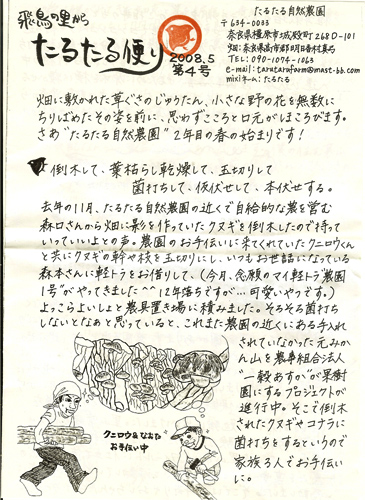 飛鳥の里から
たるたる便り
2008.5
第4号
たるたる自然農園
〒634-0033
奈良県橿原市城殿町268D-101
畑:奈良県高市郡明日香村真弓
TEL:090-1094-1063
e-mail:tarutarufarm@mast-bb.com
mixiネーム:たるたる
畑に敷かれた草ぐさのじゅうたん、小さな野の花を無数に
ちりばめたその姿を前に、思わずこころと口元がほころびます。
さあ"たるたる自然農園"2年目の春の始まりです!
倒木して、葉枯らし乾燥して、玉切りして
菌打ちして、仮伏せして、本伏せする。
去年の11月、たるたる自然農園の近くで自給的な農を営む
森口さんから畑に影を作っていたクヌギを倒木したので持って
いっていいよとの声。農園のお手伝いに来てくれていたクニロウくん
と共にクヌギの幹や枝を玉切りにし、いつもお世話になっている
森本さんに軽トラをお借りして、(今月、念願のマイ軽トラ"農園
1号"がやってきました^^12年落ちですが…可愛いやつです。)
よっこらよいしょと農具置き場に積みました。そろそろ菌打ち
しないとなぁと思っていると、これまた農園の近くにある手入れ
されていなかった元みか
ん山を農事組合法人
"一穀あすか"が果樹
園にするプロジェクトが
進行中。そこで倒木
されたクヌギやコナラに
菌打ちをするというので
家族3人でお手伝い
に。
クニロウ&なおた
お手伝い中